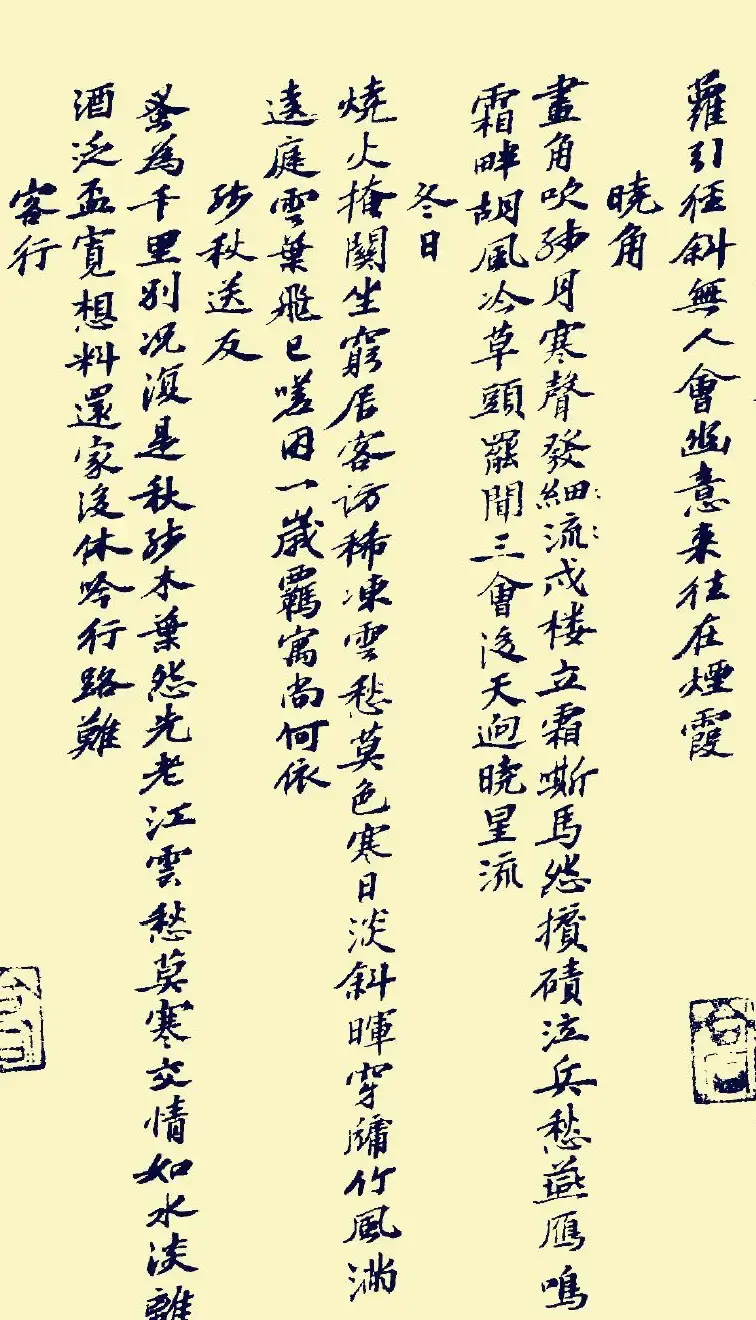 蘿引徑斜無人會幽意來往在煙霞
曉角
畫角吹殘月寒聲發細流戍楼立霜嘶馬怨攢磧泣兵愁燕鴈鳴
霜畔胡風冷草頭罷聞三會後天迥曉星流
冬日
燒火掩關坐窮居客訪稀凍雲愁莫色寒日淡斜暉穿牖竹風滿
遶庭雲葉飛已嗟周一歲羈寓尚何依
殘秋送友
蚤為千里別況復是秋殘木葉怨先老江雲愁莫寒交情如水淡離
酒泛盃寬想料還家後休吟行路難
客行